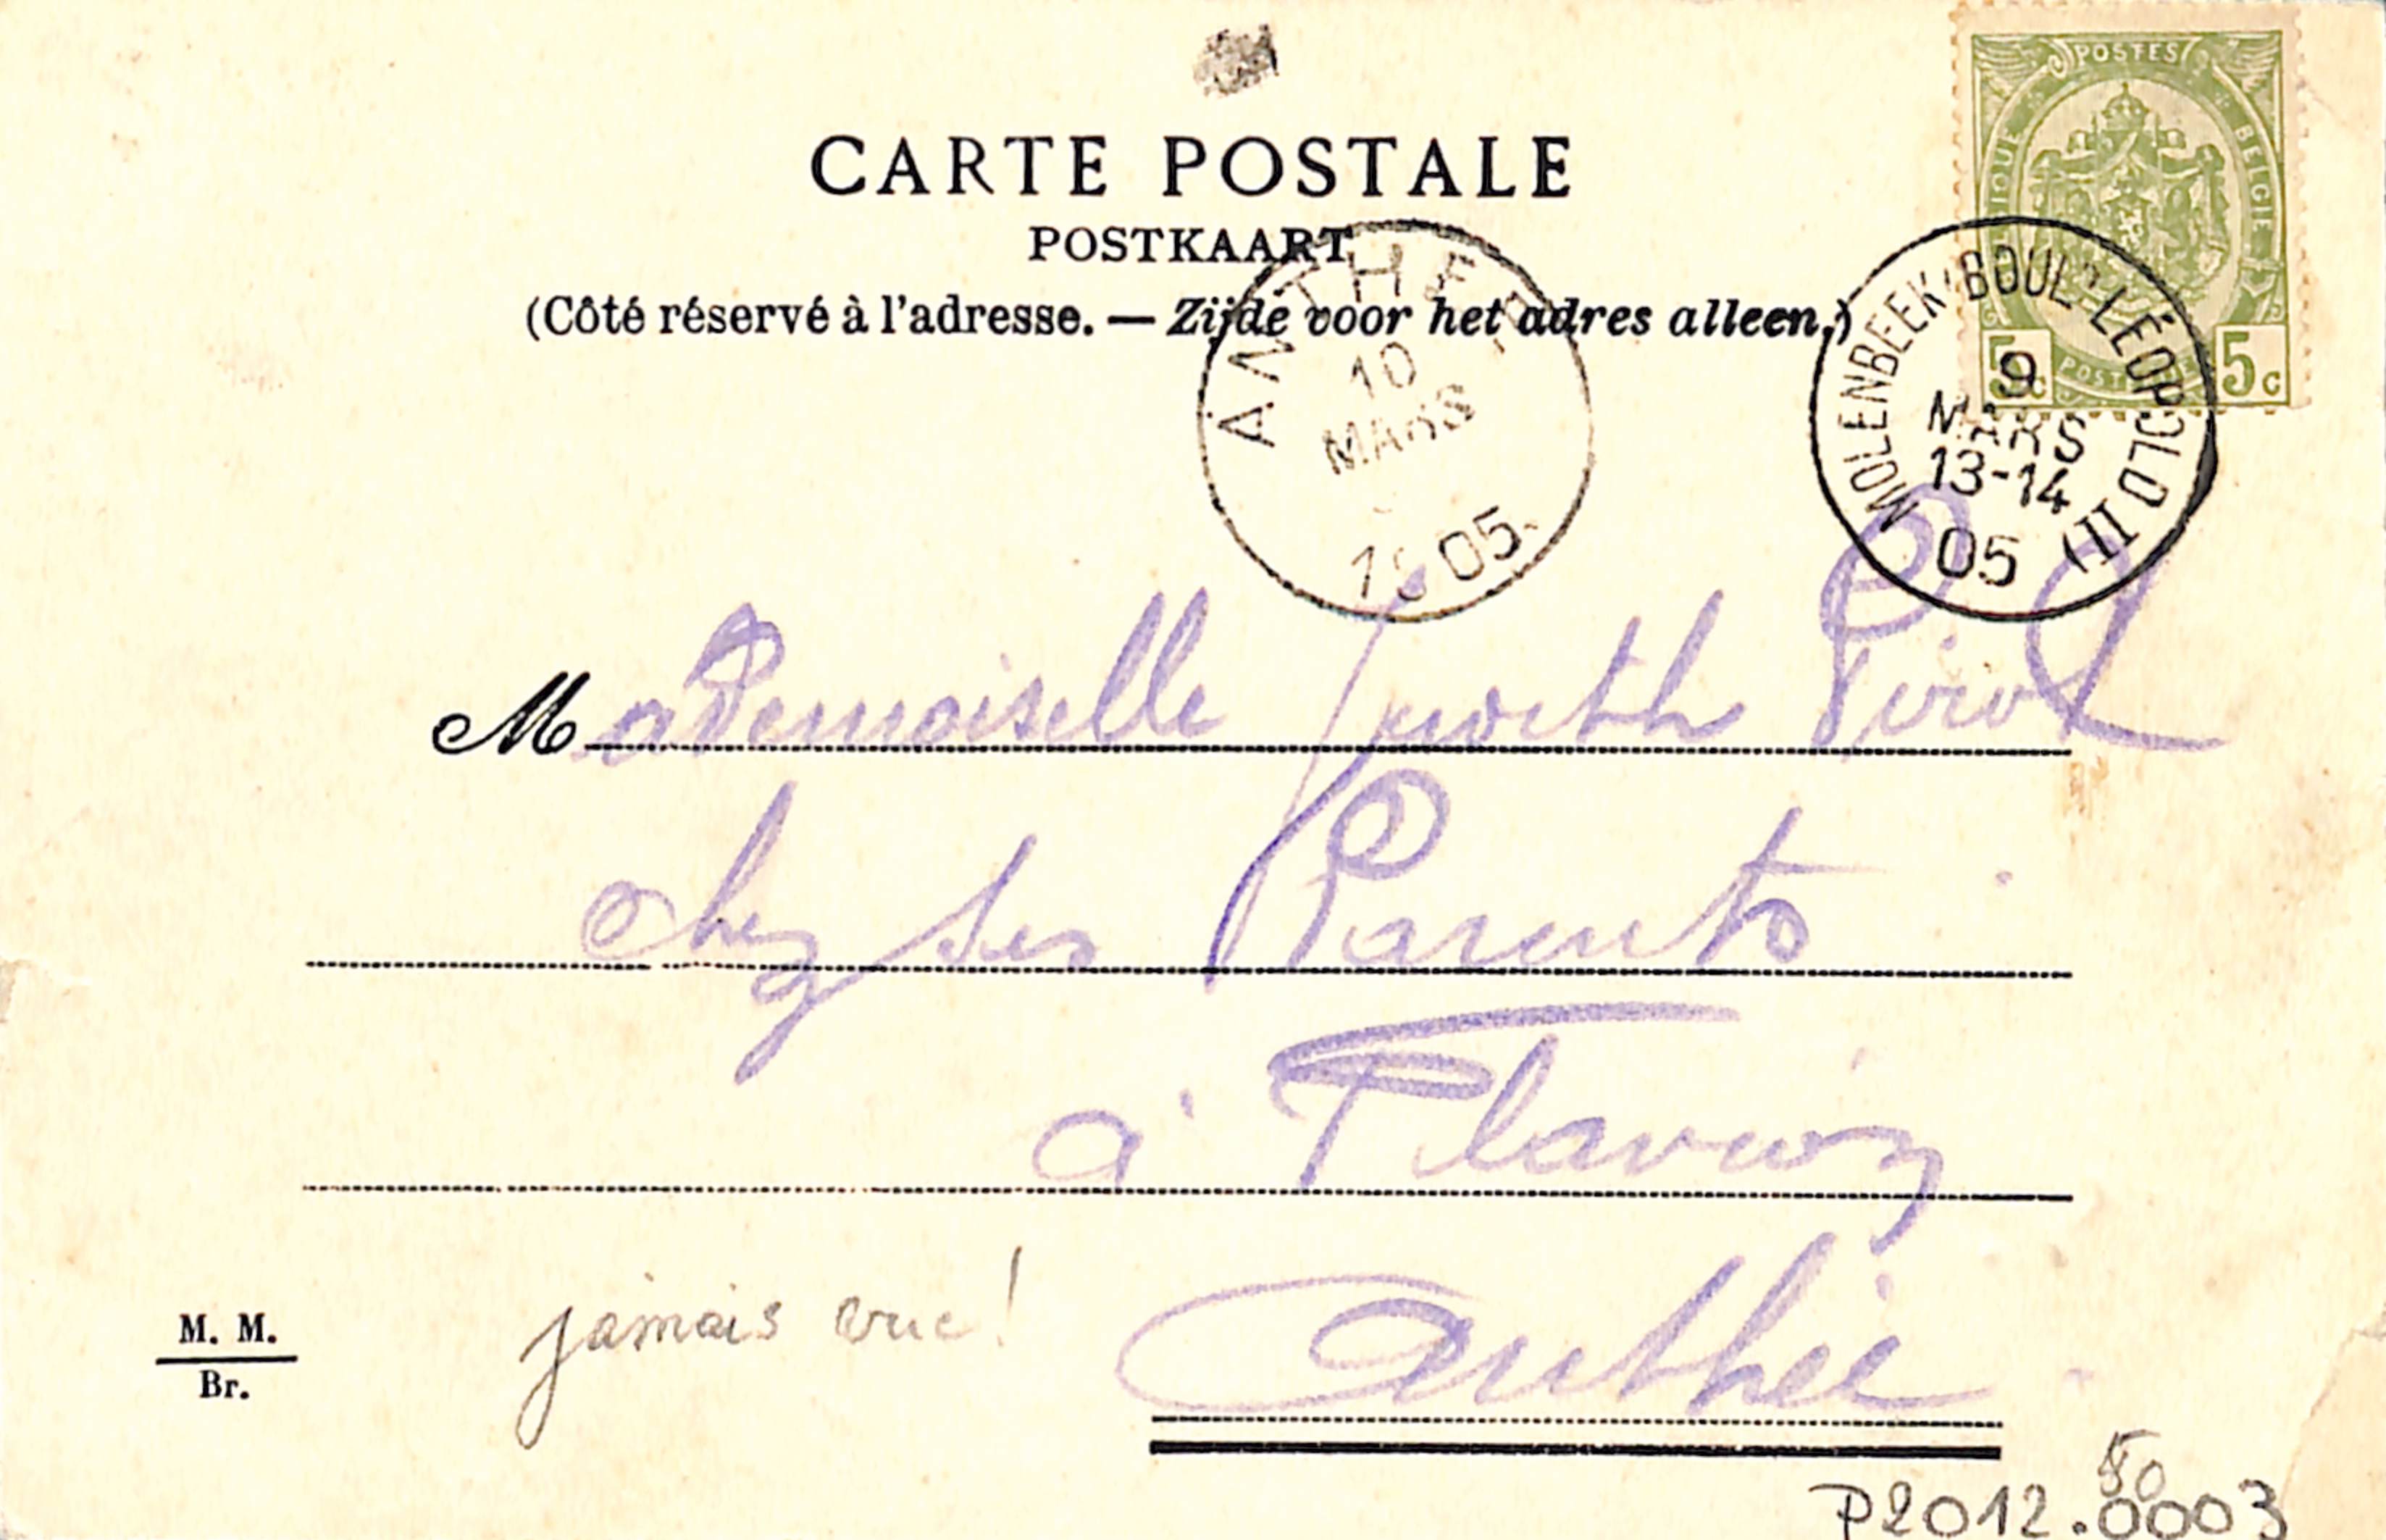 POSTES
BELGIQUE BELGIË
5c POSTERIJEN 5c
CARTE POSTALE
POSTKAART
(Côté réservé à l'adresse. — Zijde voor het adres alleen.)
ANTHÉE
10
MARS
1905
MOLENBEEK (BOULD LÉOPOLD II)
9
MARS
13-14
05
Mademoiselle Judith Pirot
chez ses Parents
à Flavion
Anthée
jamais vue!
M. M.
Br.
50
P2012.0003